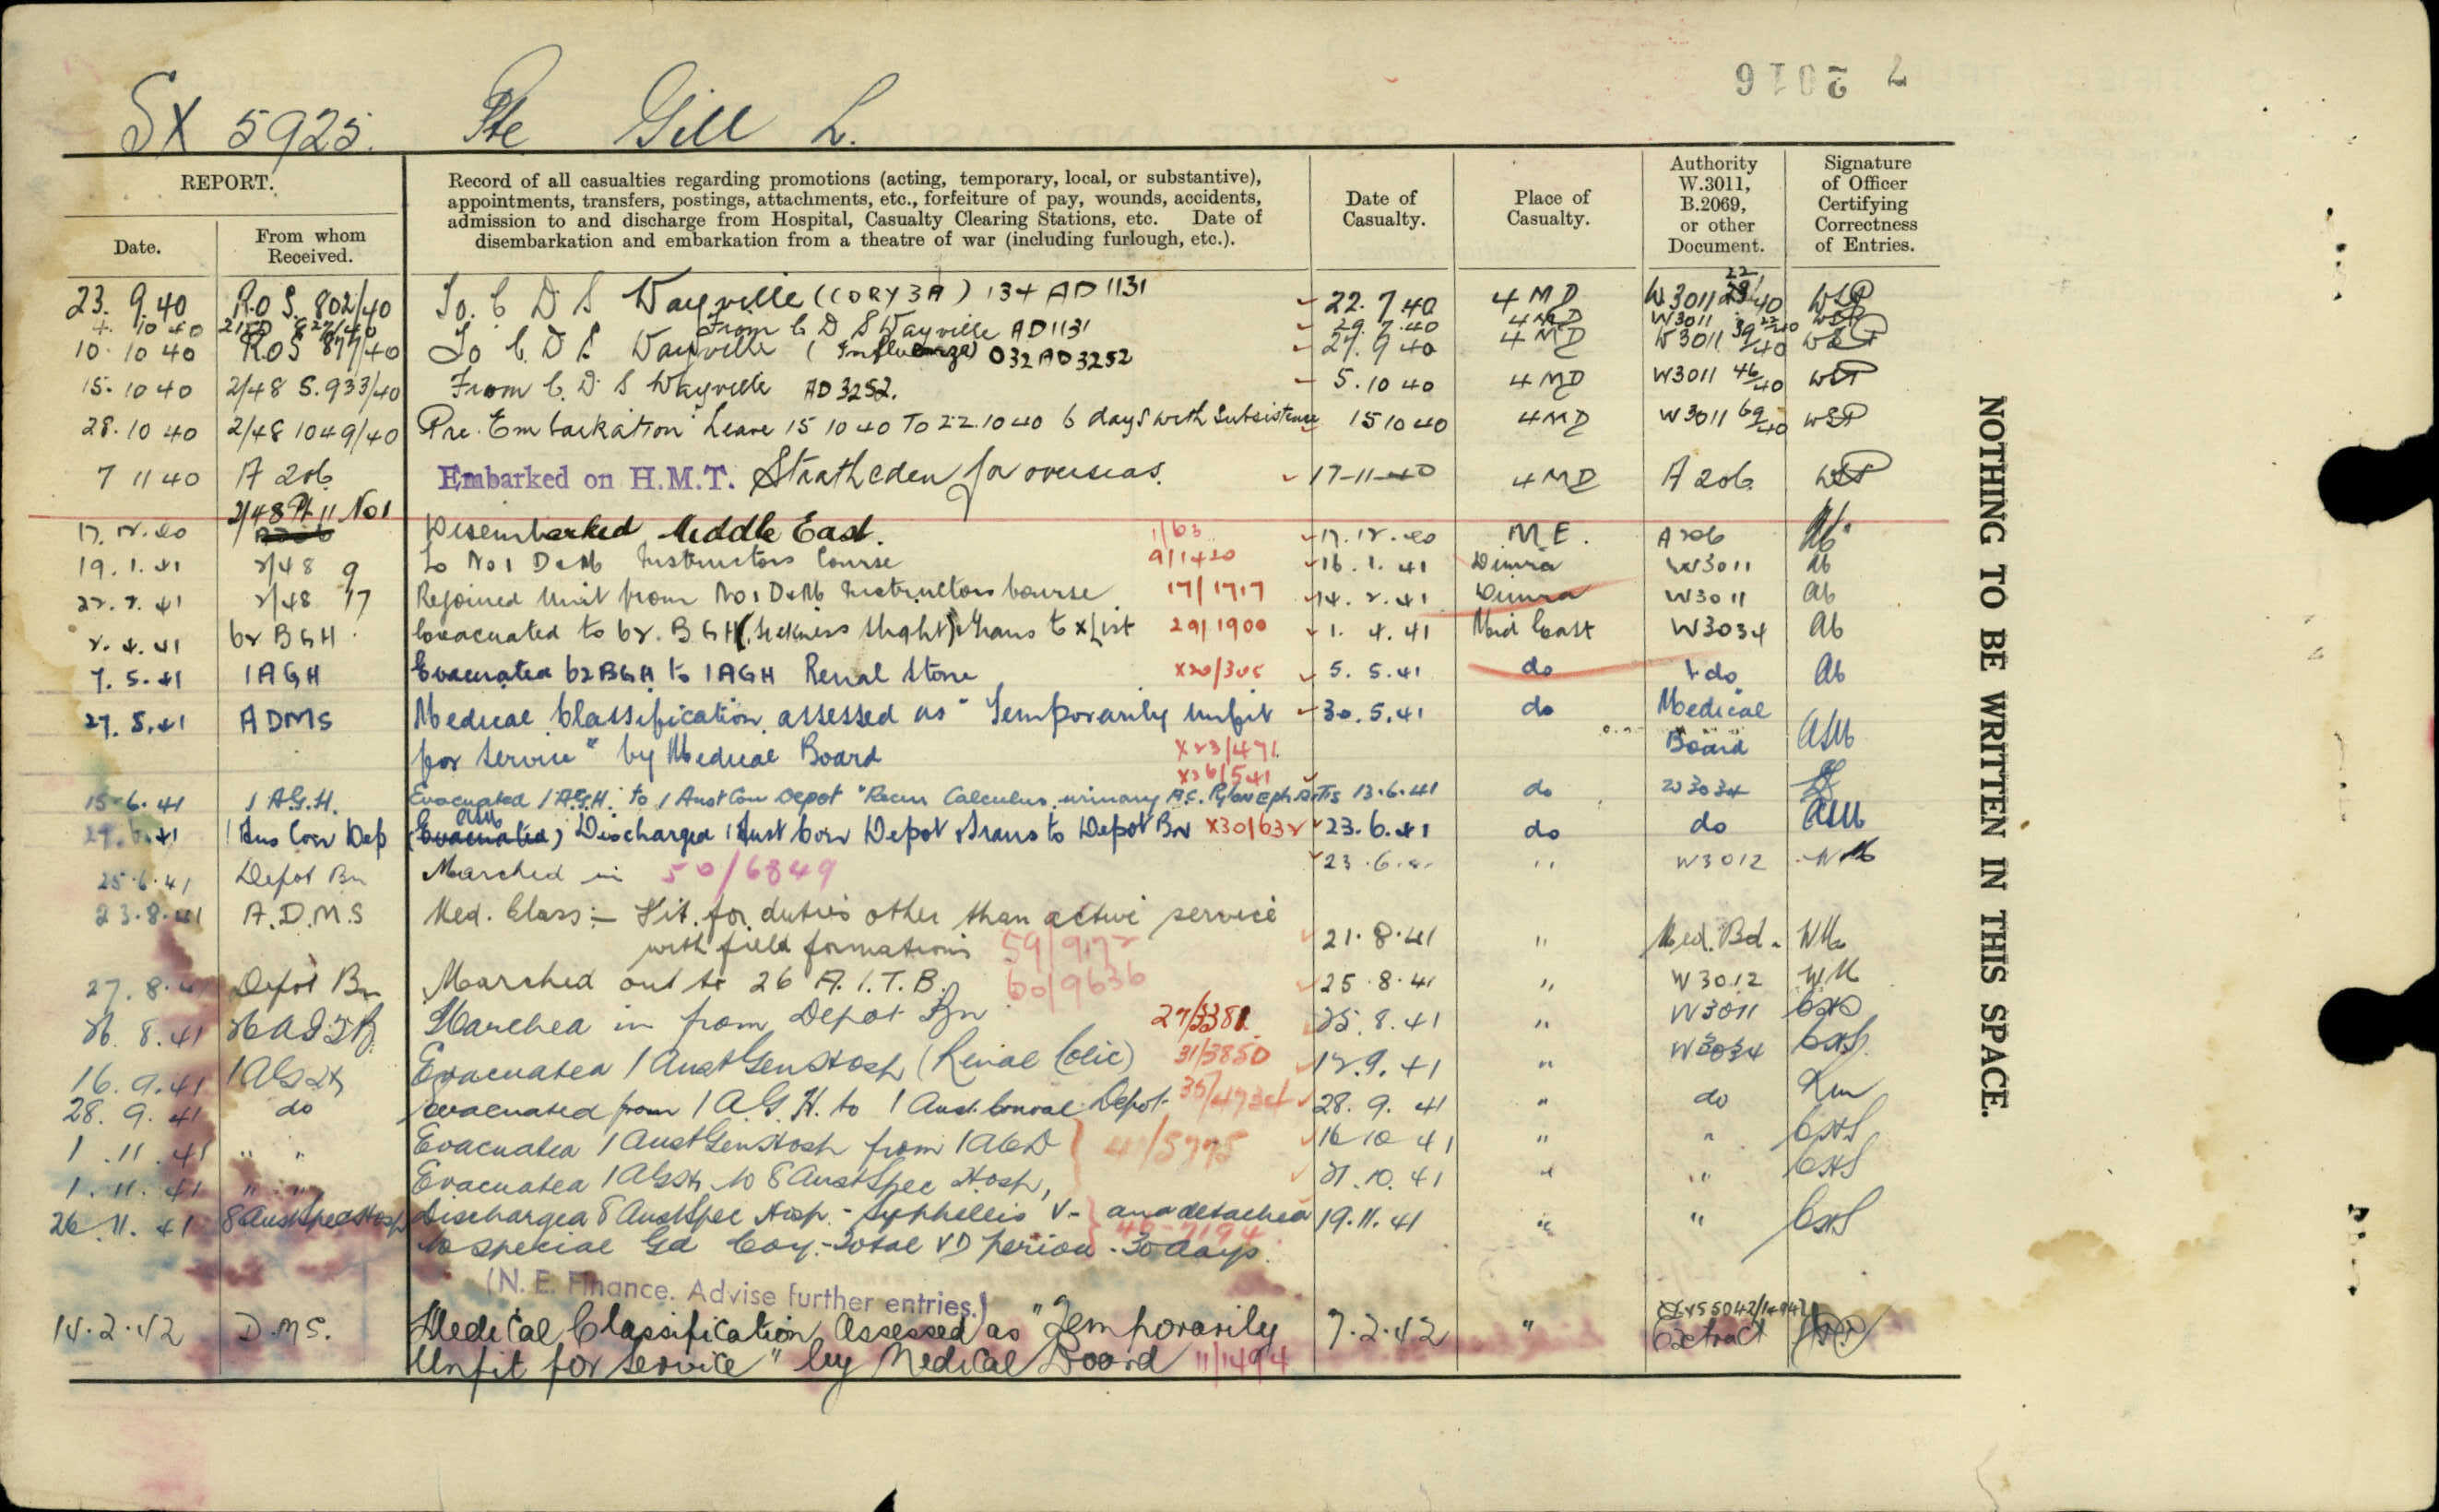 7 2016
SX 5925. Pte Gill L.
REPORT.
Date.
From whom Received.
Record of all casualties regarding promotions (acting, temporary, local, or substantive),
appointments, transfers, postings, attachments, etc., forfeiture of pay, wounds, accidents,
admission to and discharge from Hospital, Casualty Clearing Stations, etc. Date of
disembarkation and embarkation from a theatre of war (including furlough, etc.).
Date of Casualty.
Place of Casualty.
Authority W.3011, B.2069, or other Document.
Signature of Officer Certifying Correctness of Entries.
23. 9. 40 R.O.S. 802/40 To. C D S Wayville (CORYZA) 134 AD 1131 22. 7. 40 4 MD W3011
4. 10 40 From C D S Wayville AD 1131 29. 7. 40 4 MD W3011
10. 10 40 ROS 877/40 To C. D S. Wayville (Influenza) 032 AD3252 27. 9 40 4 MD W3011 39/40
15. 10 40 2/48 S.933/40 From C. D. S Wayville AD 3252. 5. 10 40 4 MD W3011 46/40
28. 10 40 2/48 1049/40 Pre. Embarkation Leave 15 10 40 To 22.10 40 6 days with Subsistence 15 10 40 4 MD W3011 69/40
7 11 40 A 206 Embarked on H.M.T. Stratheden for overseas. 17-11-40 4 MD A 206
2/48 Pt 11 No 1
17. 12. 40 Disembarked Middle East. 1/63 17. 12. 40 M E. A206
19. 1. 41 2/48 9 To No 1 D&M Instructors Course 9/1420 16. 1. 41 Dimra W3011 Ab
22. 2. 41 2/48 17 Rejoined Unit from No 1 D&M Instructors Course 17/1717 14. 2. 41 Dimra W3011 Ab
2. 4. 41 62 BGH Evacuated to 62. BGH (Sickness Slight) & trans to X List 29/1900 1. 4. 41 Mid East W3034 Ab
7. 5. 41 1 AGH Evacuated 62 BGH to 1 AGH Renal Stone X20/305 5. 5. 41 do do Ab
27. 5. 41 ADMS Medical Classification assessed as "Temporarily Unfit 30. 5. 41 do Medical
for Service" by Medical Board X23/471 Board
X26/541
15-6. 41 1 A.G.H. Evacuated 1 A.G.H. to 1 Aust Con Depot "Recur Calculus, urinary 13. 6. 41 do W3034
1 Aus Con Dep (Evacuated) Discharged 1 Aust Con Depot & trans to Depot Bn X30/632 23. 6. 41 do do
25. 6. 41 Depot Bn Marched in 50/6849 23. 6. " W3012
23. 8. 41 A.D.M.S Med. Class:- Fit for duties other than active service
with field formations 59/9172 21. 8. 41 " Med. Bd.
27. 8. 41 Depot Bn Marched out to 26 A. I. T. B. 60/9636 25. 8. 41 " W3012
26. 8. 41 26 A I T B. Marched in from Depot Bn 25. 8. 41 " W3011
16. 9. 41 1 AGH Evacuated 1 Aust Gen Hosp (Renal Colic) 31/3850 12. 9. 41 " W3034
28. 9. 41 do Evacuated from 1 A.G.H. to 1 Aust. Conval. Depot. 28. 9. 41 " do
1. 11. 41 " " Evacuated 1 Aust Gen Hosp from 1 ACD 16 10 41 " "
1. 11. 41 " " Evacuated 1 AGH to 8 Aust Spec Hosp, 21. 10. 41 " "
26. 11. 41 8 Aust Spec Hosp Discharged 8 Aust Spec Hosp. - Syphillis V- and detached 19. 11. 41 " "
to special Gd Coy. - Total VD period - 30 days. 46-7194
(N. E. Finance. Advise further entries.)
14. 2. 42 D.M.S. Medical Classification Assessed as "Temporarily 7. 2. 42 " Extract
Unfit for Service" by Medical Board 11/1494
NOTHING TO BE WRITTEN IN THIS SPACE.